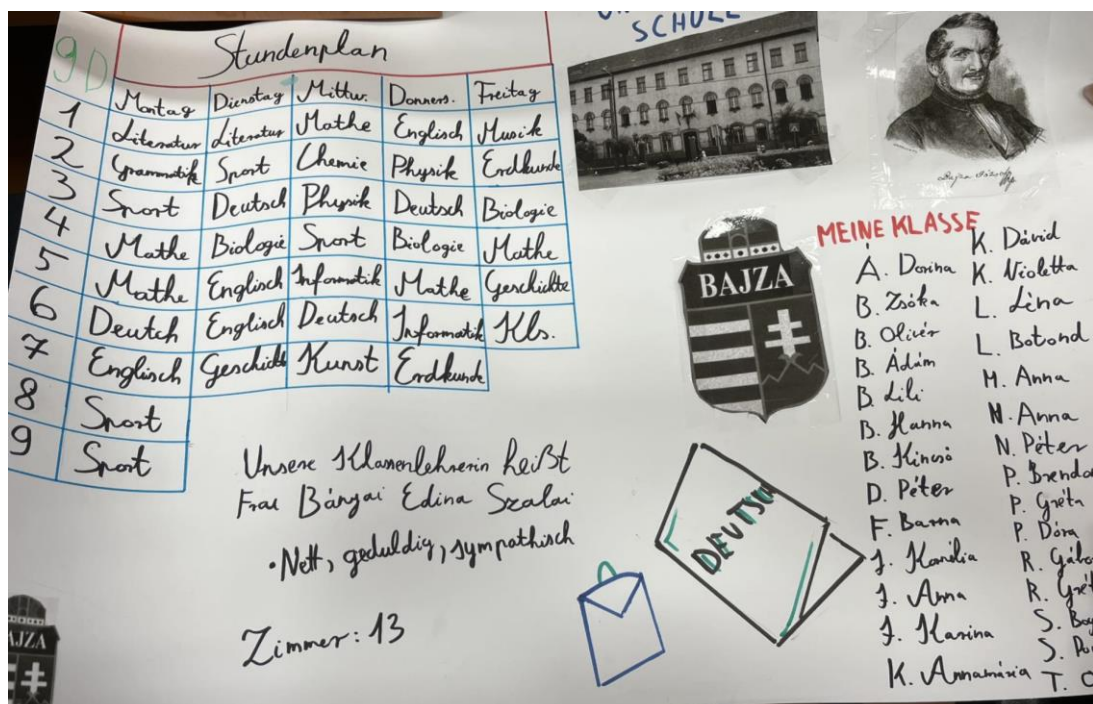 9D
Stundenplan
Montag Dienstag Mittw. Donners. Freitag
1 Literatur Literatur Mathe Englisch Musik
2 Grammatik Sport Chemie Physik Erdkunde
3 Sport Deutsch Physik Deutsch Biologie
4 Mathe Biologie Sport Biologie Mathe
5 Mathe Englisch Informatik Mathe Geschichte
6 Deutch Englisch Deutsch Informatik Kls.
7 Englisch Geschicht Kunst Erdkunde
8 Sport
9 Sport
Unsere Klassenlehrerin heißt
Frau Bányai Edina Szalai
• Nett, geduldig, sympathisch
Zimmer: 13
SCHULE
BAJZA
DEUTSCH
MEINE KLASSE
Á. Dorina
B. Zsóka
B. Olivér
B. Ádám
B. Lili
B. Hanna
B. Kincső
D. Péter
F. Barna
J. Kornélia
J. Anna
J. Karina
K. Annamária
K. Dávid
K. Violetta
L. Léna
L. Botond
M. Anna
N. Anna
N. Péter
P.
P. Gréta
P. Dóra
R.
R.
S.
S.
T.